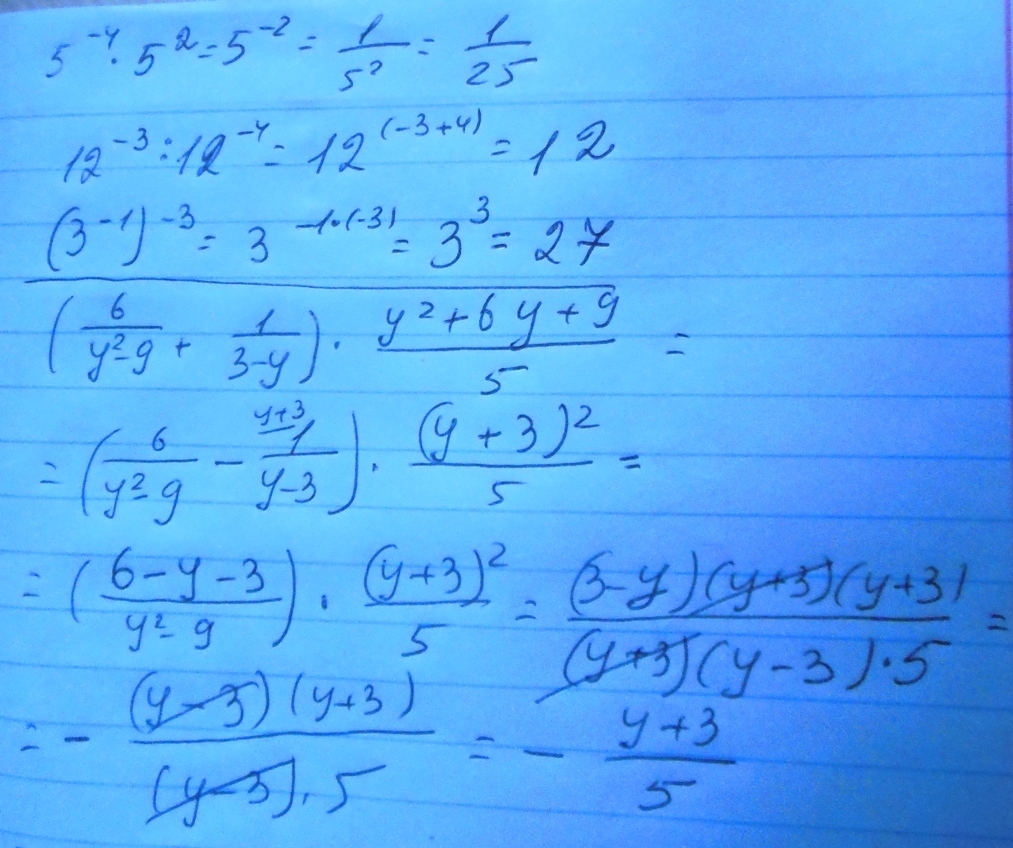 5⁻⁴ · 5² = 5⁻² = 1/5² = 1/25
12⁻³ : 12⁻⁴ = 12⁽⁻³⁺⁴⁾ = 12
(3⁻¹)⁻³ = 3^(-1·(-3)) = 3³ = 27
(6/(y²-9) + 1/(3-y)) · (y²+6y+9)/5 =
= (6/(y²-9) - 1/(y-3) y+3) · (y+3)²/5 =
= ((6-y-3)/(y²-9)) · (y+3)²/5 = (3-y)(y+3)(y+3)/((y+3)(y-3)·5) =
= - (y-3)(y+3)/((y-3)·5) = - (y+3)/5